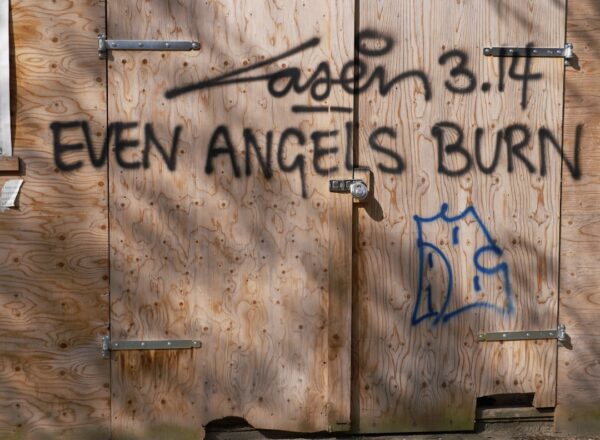 3.14
EVEN ANGELS BURN